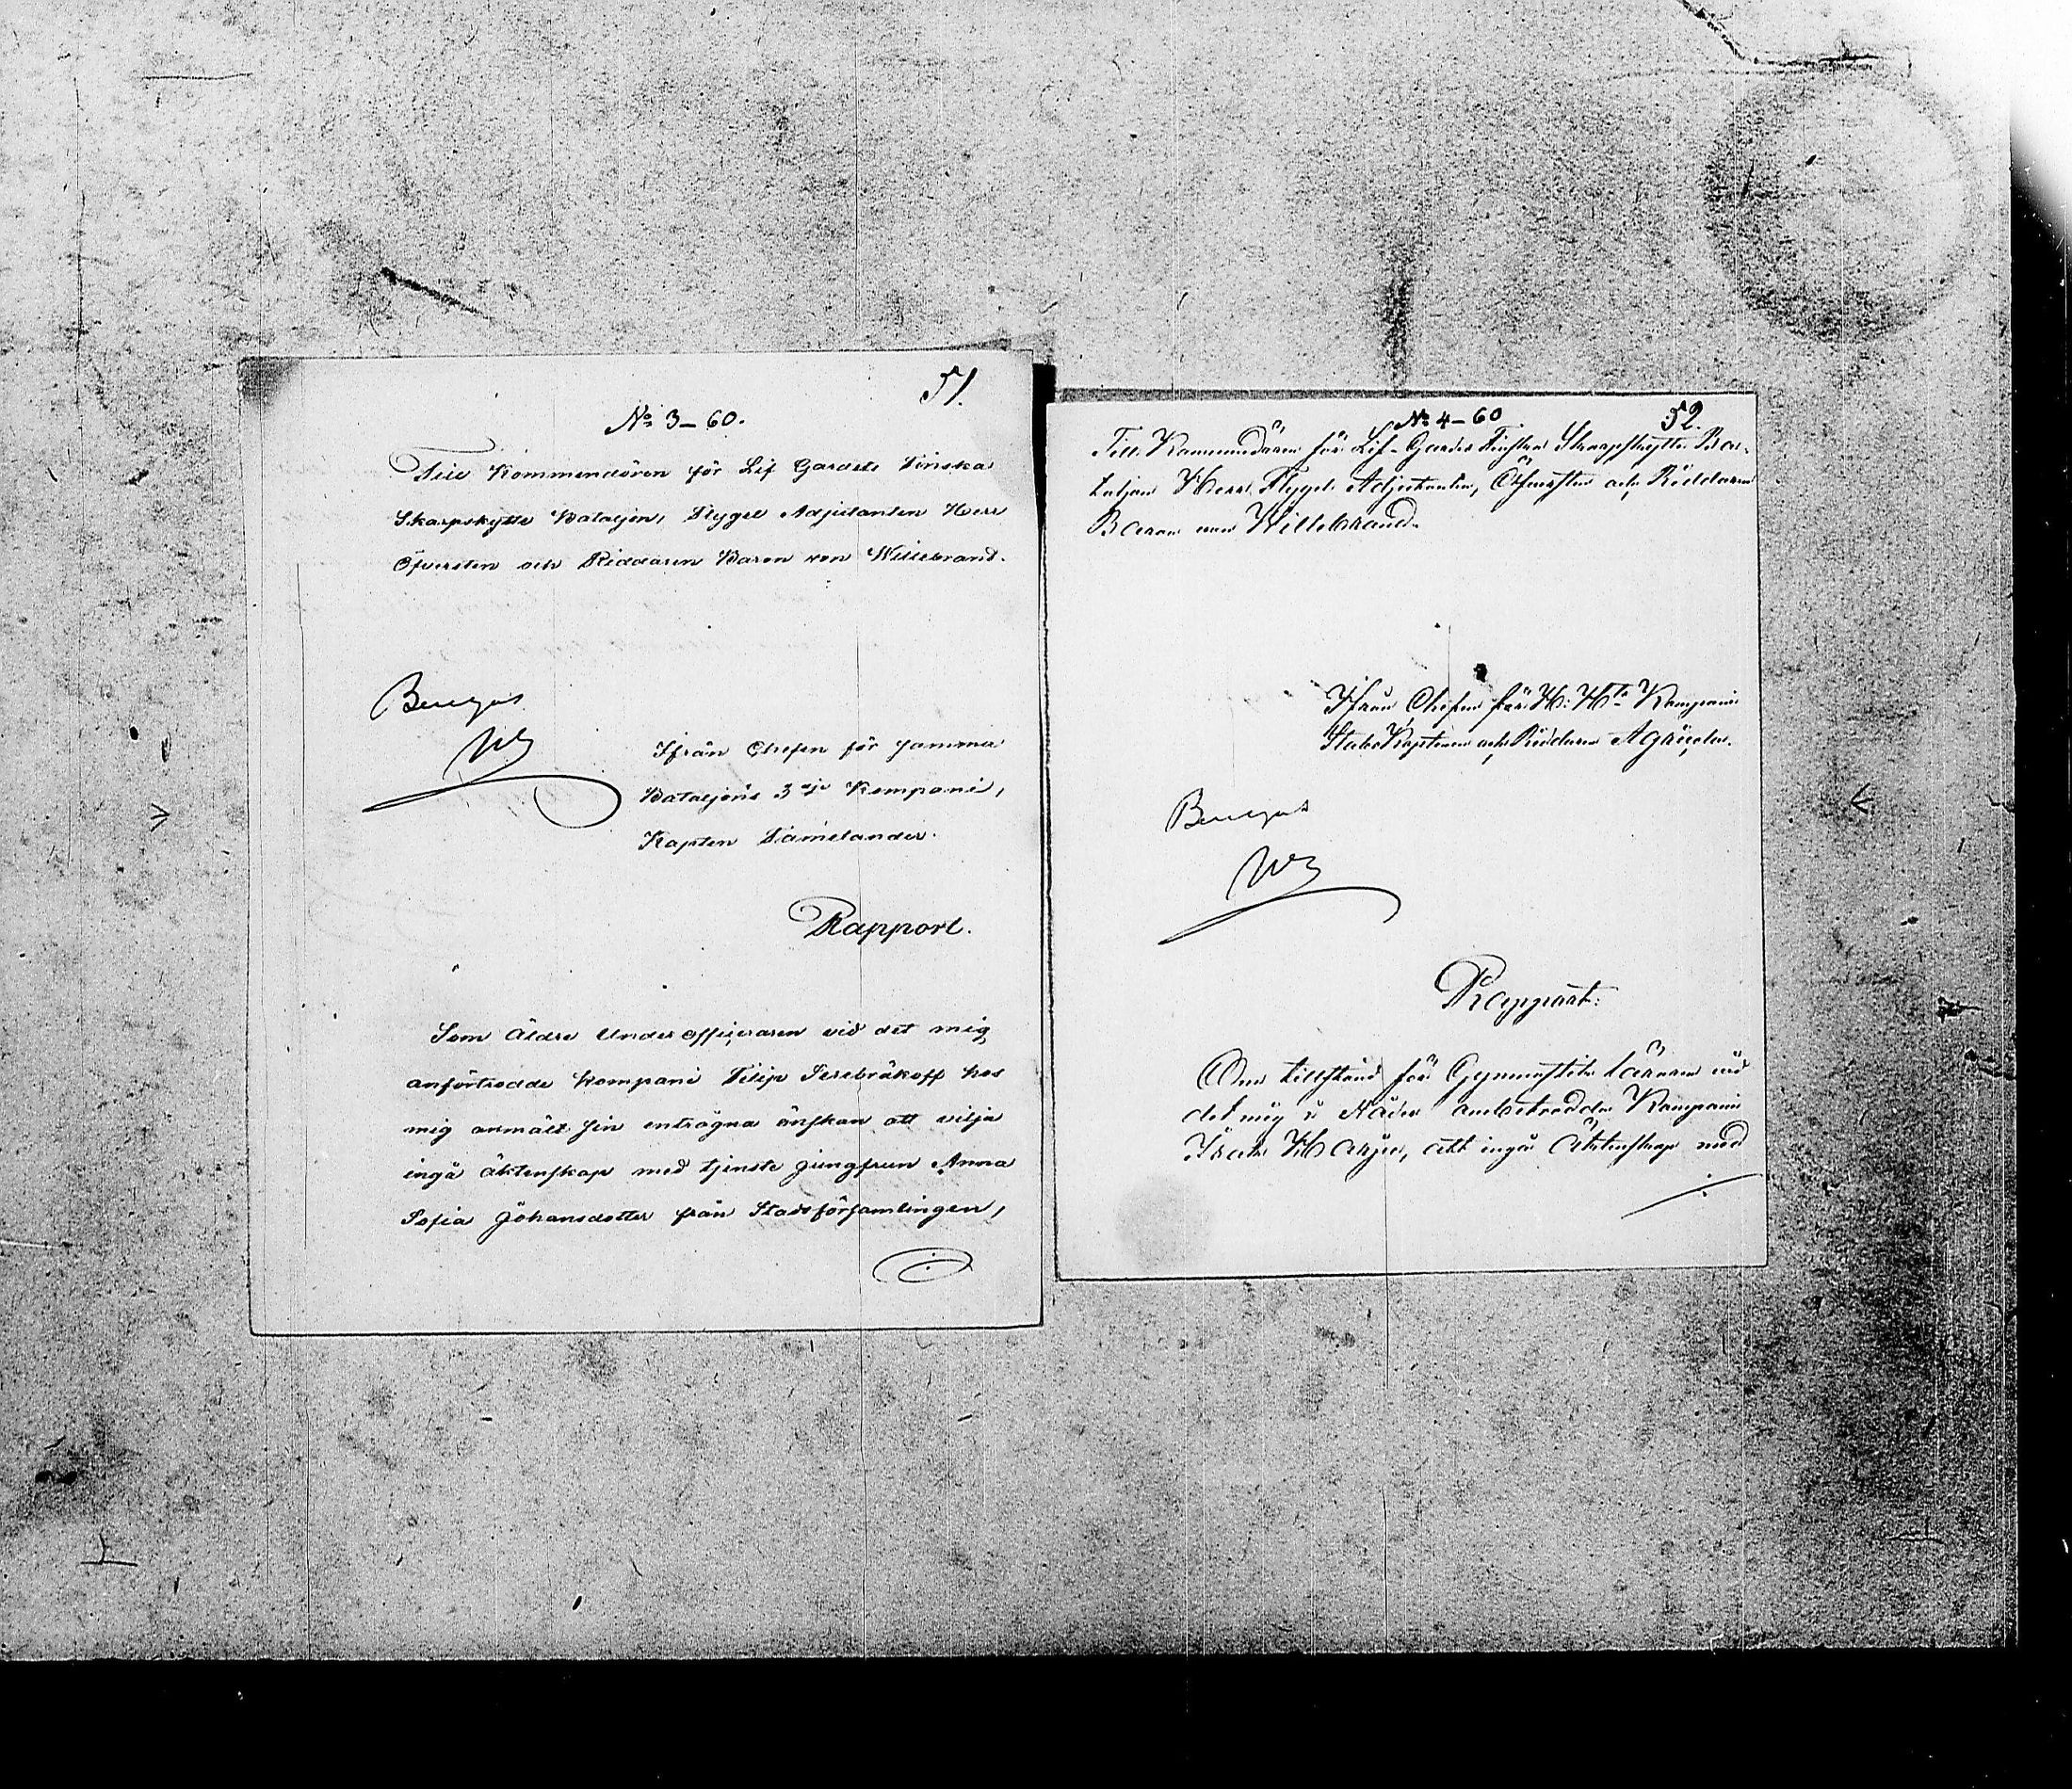 51.
No 3-60.
Till Kommendören för Lif Gardets Finska
Skarpskytte Bataljon, Flygel Adjutanten Herr
Öfversten och Riddaren Baron von Willebrand.
Beviljas
Ifrån Chefen för samma
Bataljons 3dje Kompani,
Kapten
Rapport.
Som äldre Underofficeraren vid det mig
anförtrodde Kompani Filip Serebräkoff hos
mig anmält sin enträgna önskan att vilja
ingå äktenskap med tjenste jungfrun Anna
Sofia Johansdotter från Stadsförsamlingen,
52.
No 4-60
Till Kommendören för Lif-Gardes Finska Skarpskytte Ba-
taljon Herr Flygel-Adjutanten, Öfversten och Riddaren
Baron von Willebrand.
Ifrån Chefen för H: Hts Kompani
Stabs Kaptenen och Riddaren Agricola.
Beviljas
Rapport:
Om tillstånd för Gymnastik Läraren vid
det mig i Nåder anbetrodda Kompani
Isak Harju, att ingå Äktenskap med